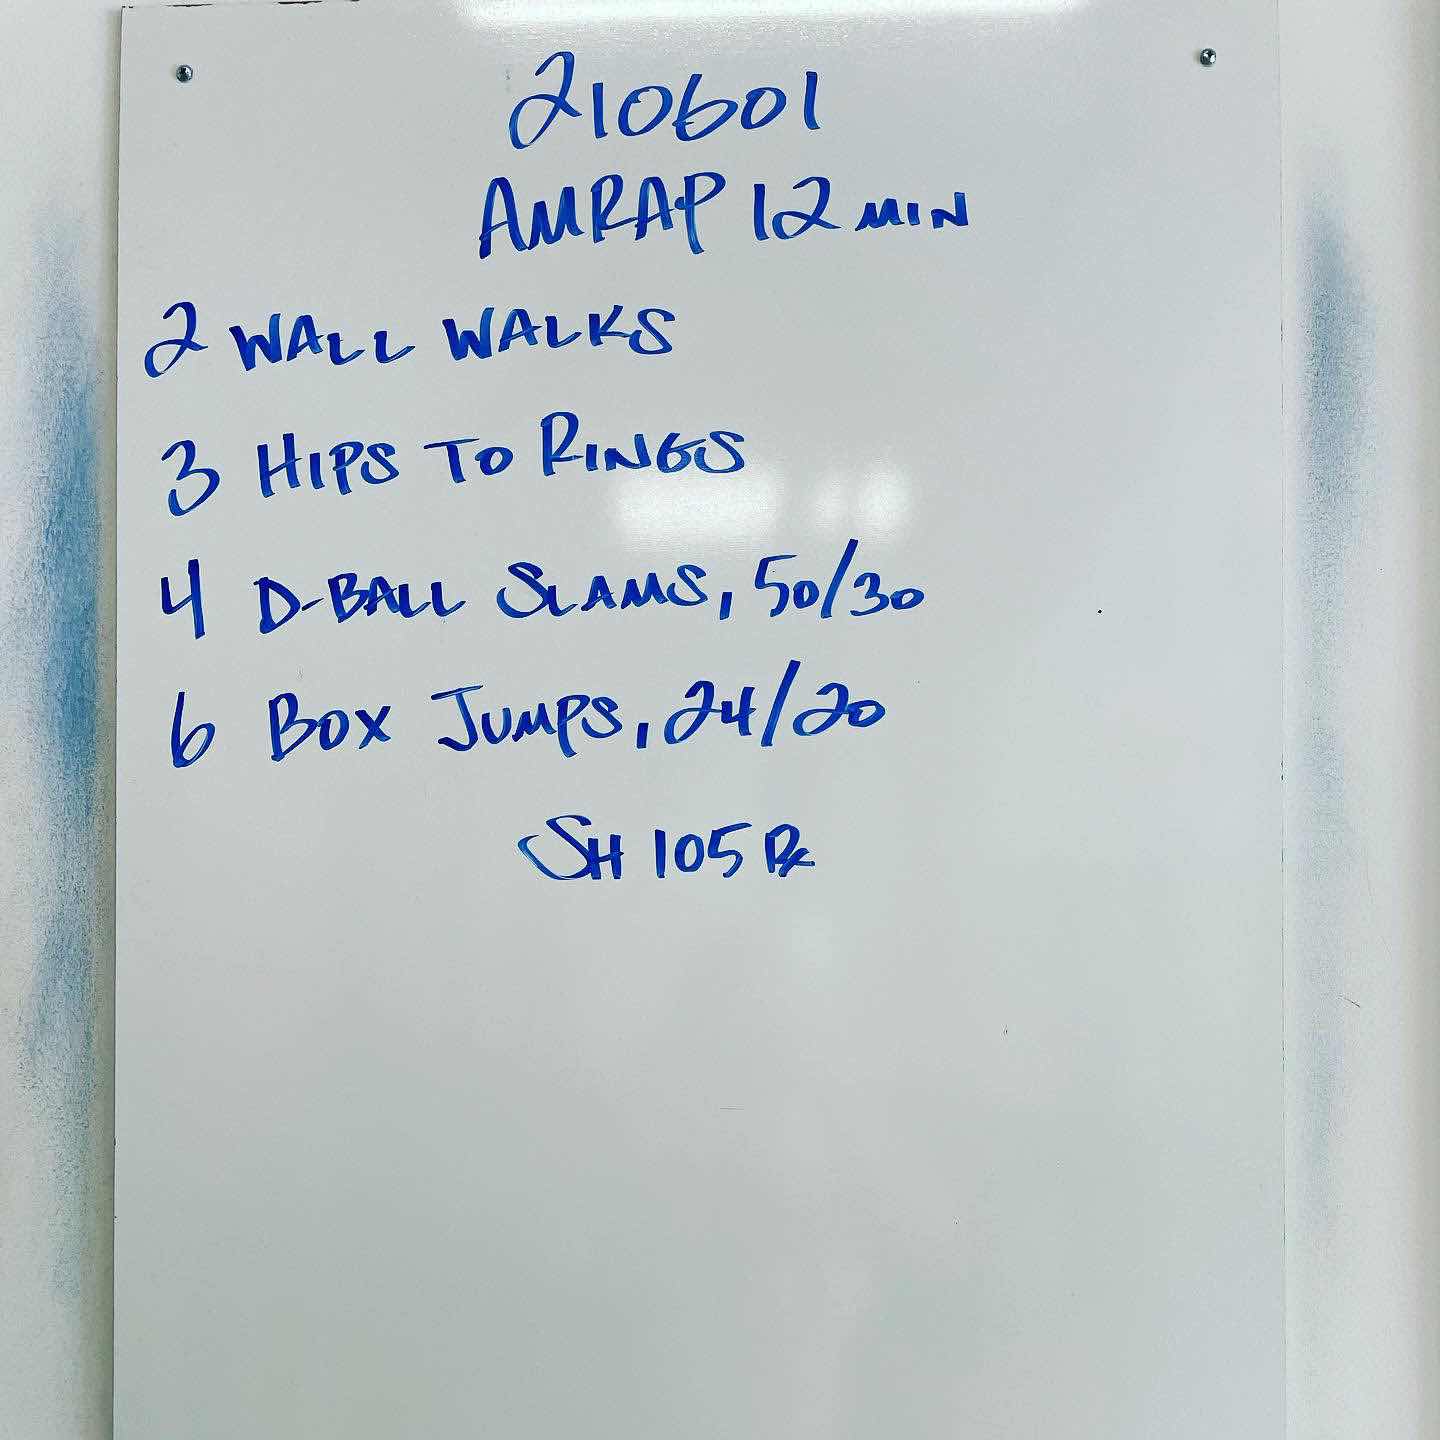 210601
AMRAP 12 MIN
2 WALL WALKS
3 HIPS TO RINGS
4 D-BALL SLAMS, 50/30
6 BOX JUMPS, 24/20
SH 105 Rx